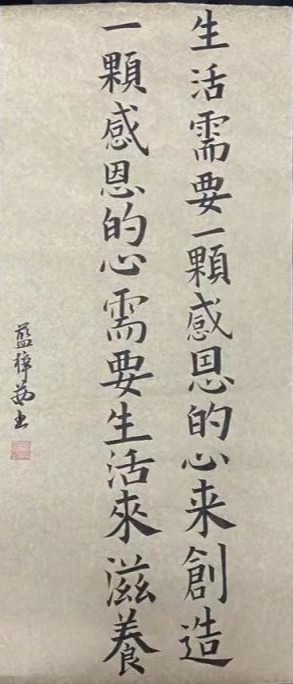 生活需要一顆感恩的心来創造
一顆感恩的心需要生活來滋養